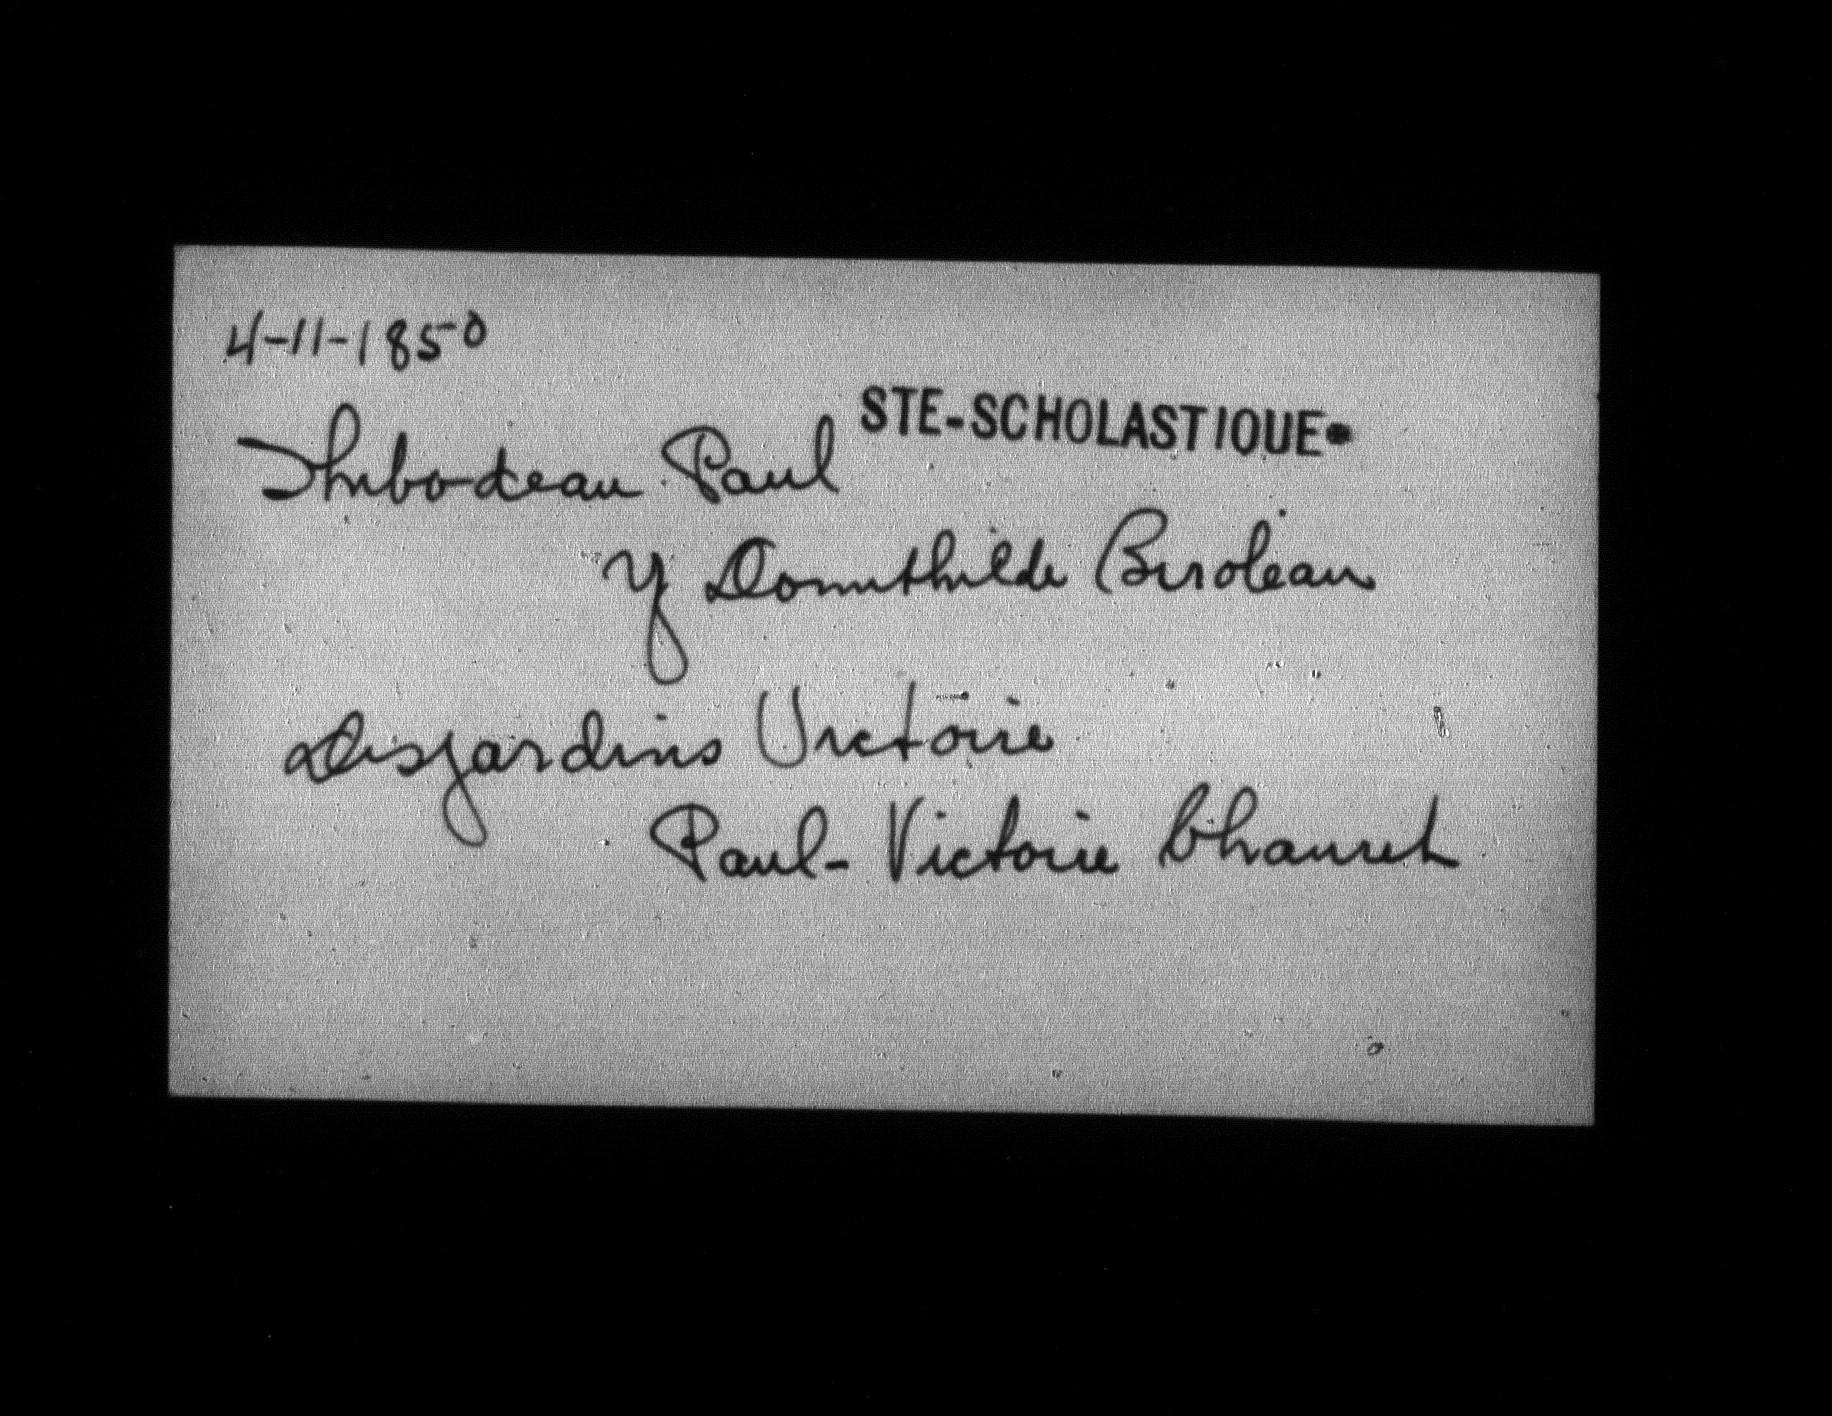 4-11-1850
STE-SCHOLASTIQUE.
Thibodeau Paul
y Domithilde Biroleau
Desjardins Victoire
Paul - Victoire Chauret